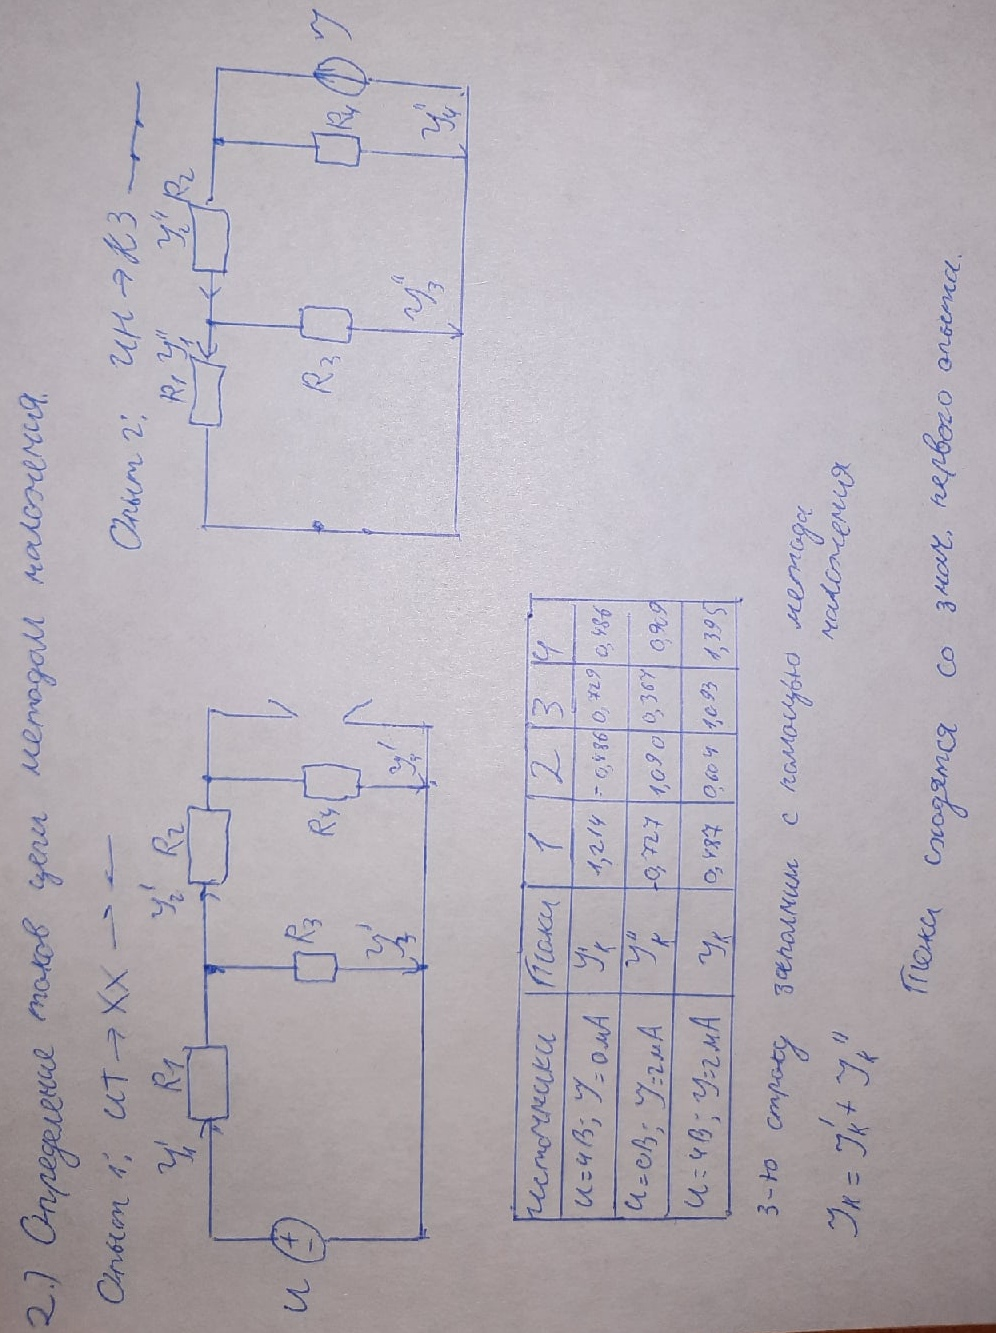 2.) Определение токов цепи методом наложения.
Опыт 1: ИТ → ХХ
Опыт 2: ИН → КЗ
У1' R1 У2' R2
R3 R4
У3' У4'
И + -
R1 У1" У2" R2
R3 R4 У
У3" У4"
Источники Токи 1 2 3 4
И=4В; У=0мА У'к 1,214 -0,486 0,729 0,486
И=0В; У=2мА У"к -0,727 1,090 0,364 0,909
И=4В; У=2мА Ук 0,487 0,604 1,093 1,395
3-ю строку заполним с помощью метода
наложения
Ук = У'к + У"к
Токи сходятся со знач. первого опыта.